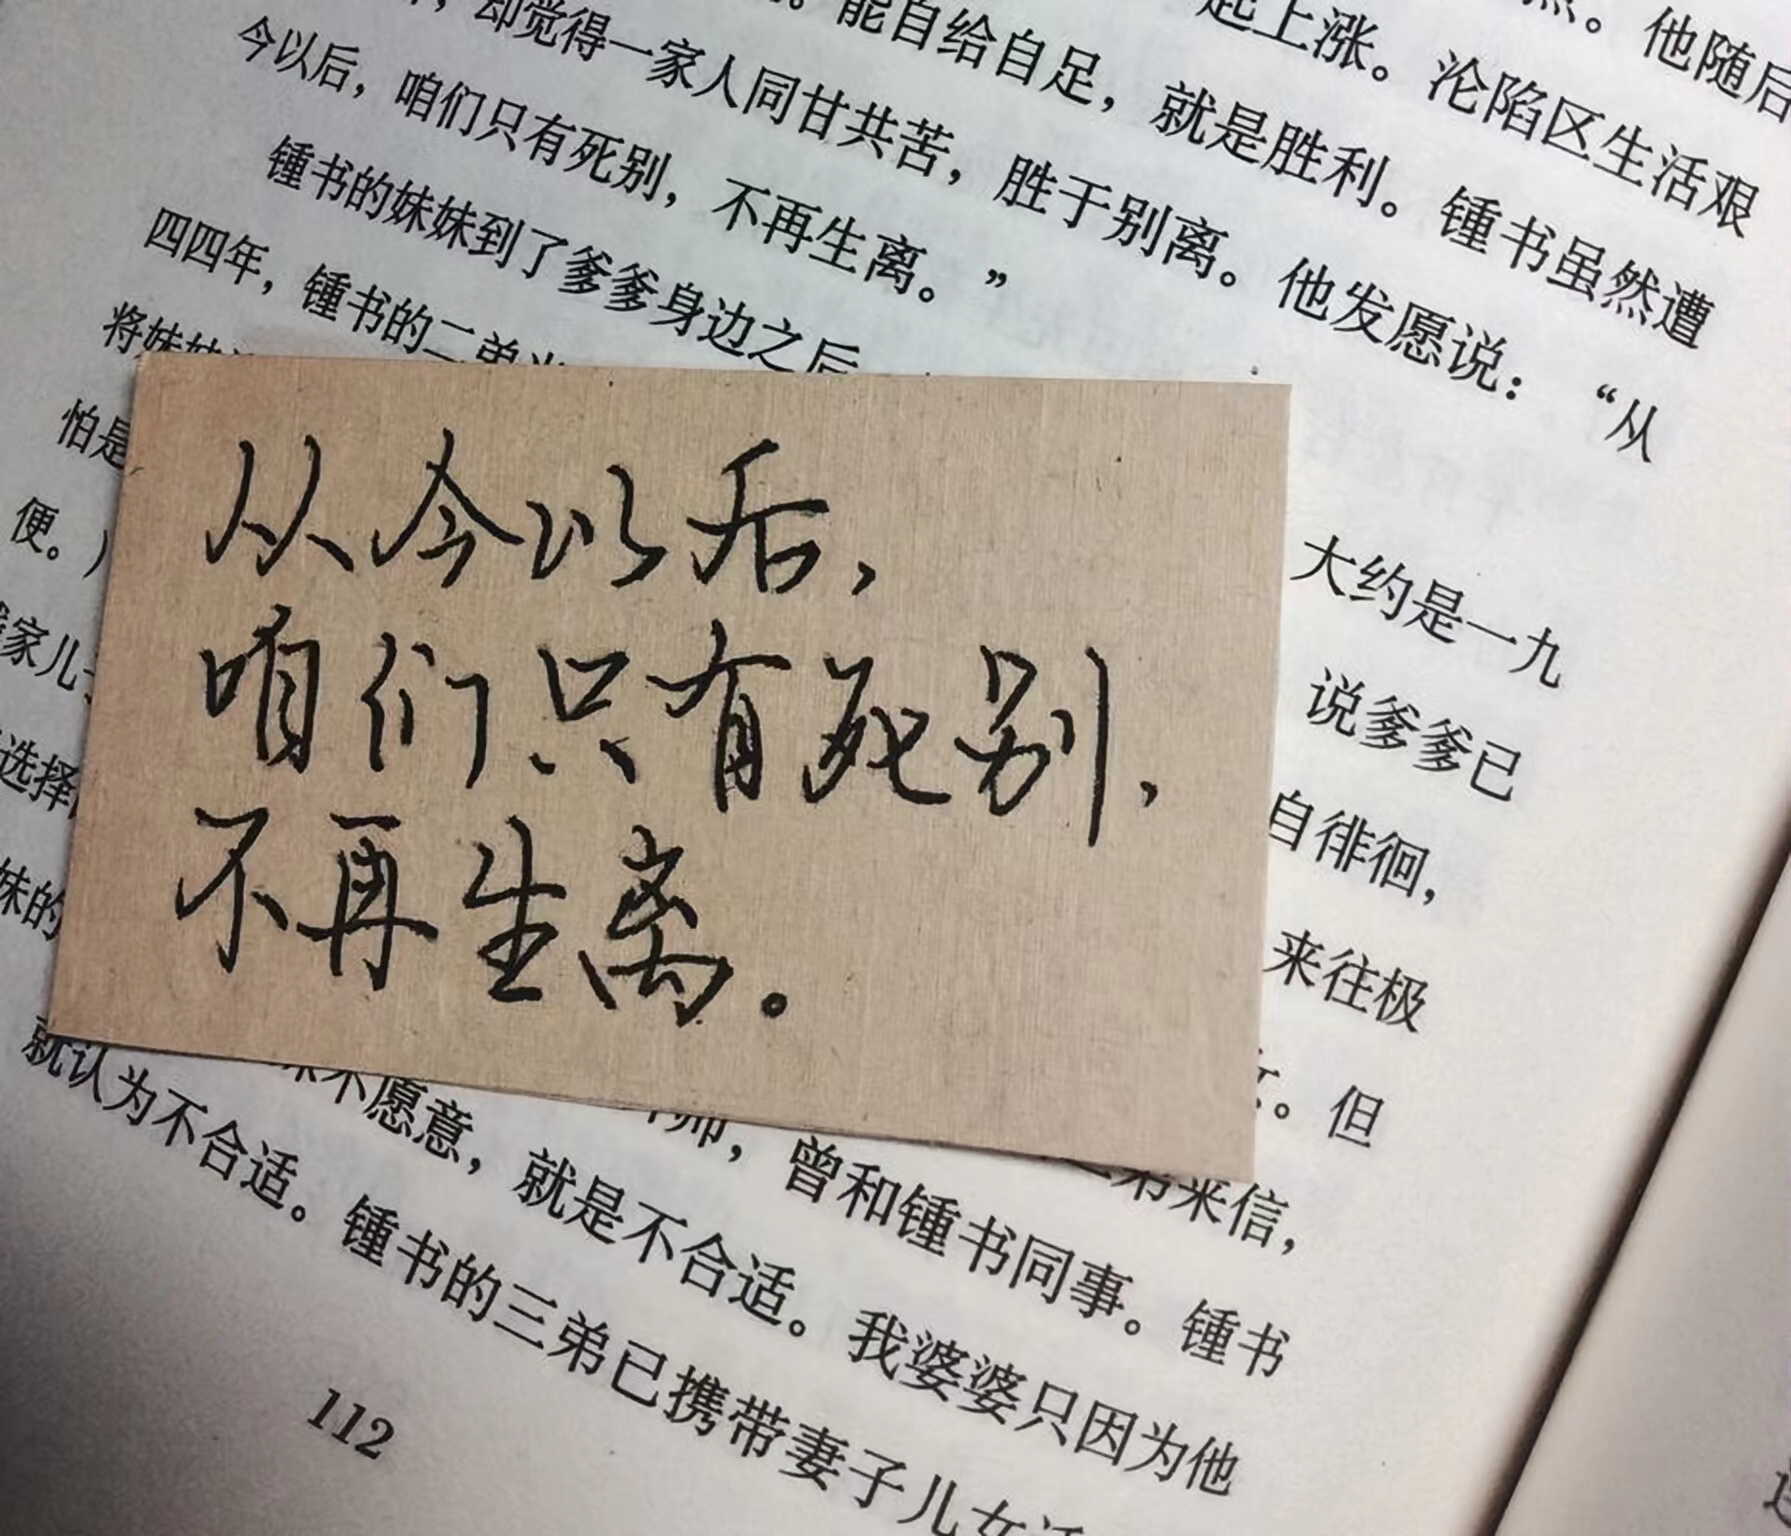 他随后
起上涨。沦陷区生活艰
能自给自足，就是胜利。锺书虽然遭
却觉得一家人同甘共苦，胜于别离。他发愿说：“从
今以后，咱们只有死别，不再生离。”
锺书的妹妹到了爹爹身边之后 大约是一九
四四年，锺书的二弟 说爹爹已
将妹妹 自徘徊，
怕是 来往极
便。） 。但
家儿 弟来信，
选择 师，曾和锺书同事。锺书
妹的 不愿意，就是不合适。我婆婆只因为他
就认为不合适。锺书的三弟已携带妻子儿女
112
从今以后，
咱们只有死别，
不再生离。